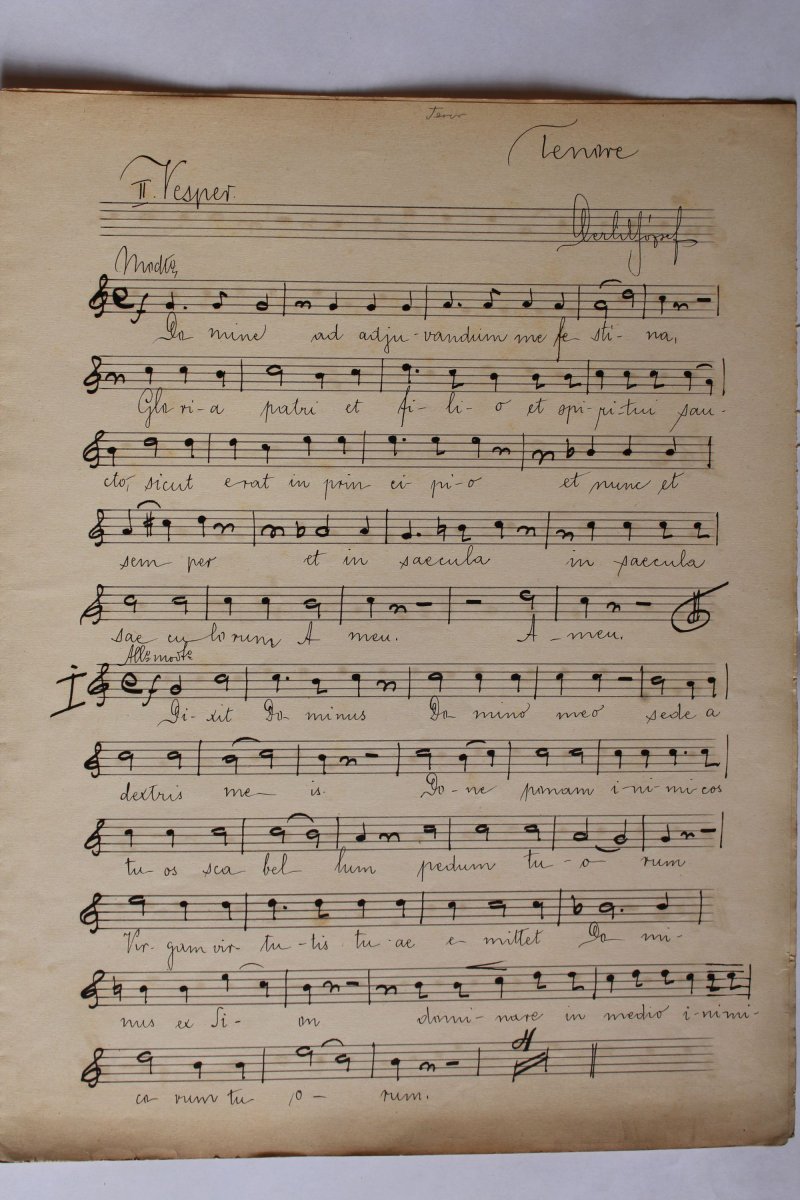 Tenor
Tenore
II. Vesper.
József
Modto,
Do mine ad adju-vandum me fe sti- na,
Glo ri-a patri et fi-li-o et spi-ri-tui san-
cto, sicut erat in prin ci-pi-o et nunc et
sem per et in saecula in saecula
sae cu lo rum A men. A-men.
All° modto
I Di-xit Do minus Do mino meo sede a
dextris me- is. Do-ne ponam i-ni-mi cos
tu-os sca bel lum pedum tu-o- rum
Vir-gam vir-tu-tis tu-ae e-mittet Do mi-
nus ex Si- on domi-nare in medio i-nimi-
co rum tu o- rum.